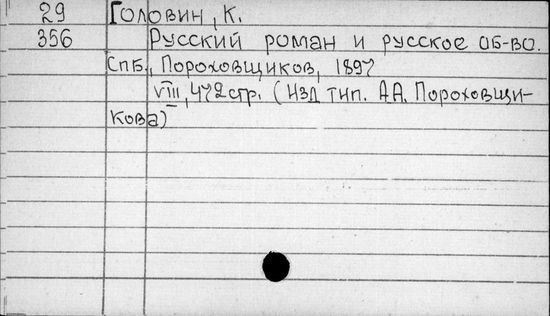 29 Головин, К.
356 Русский роман и русское об-во.
СПб., Пороховщиков, 1897
VIII, 472 стр. (Изд. тип. А.А. Пороховщи-
кова)